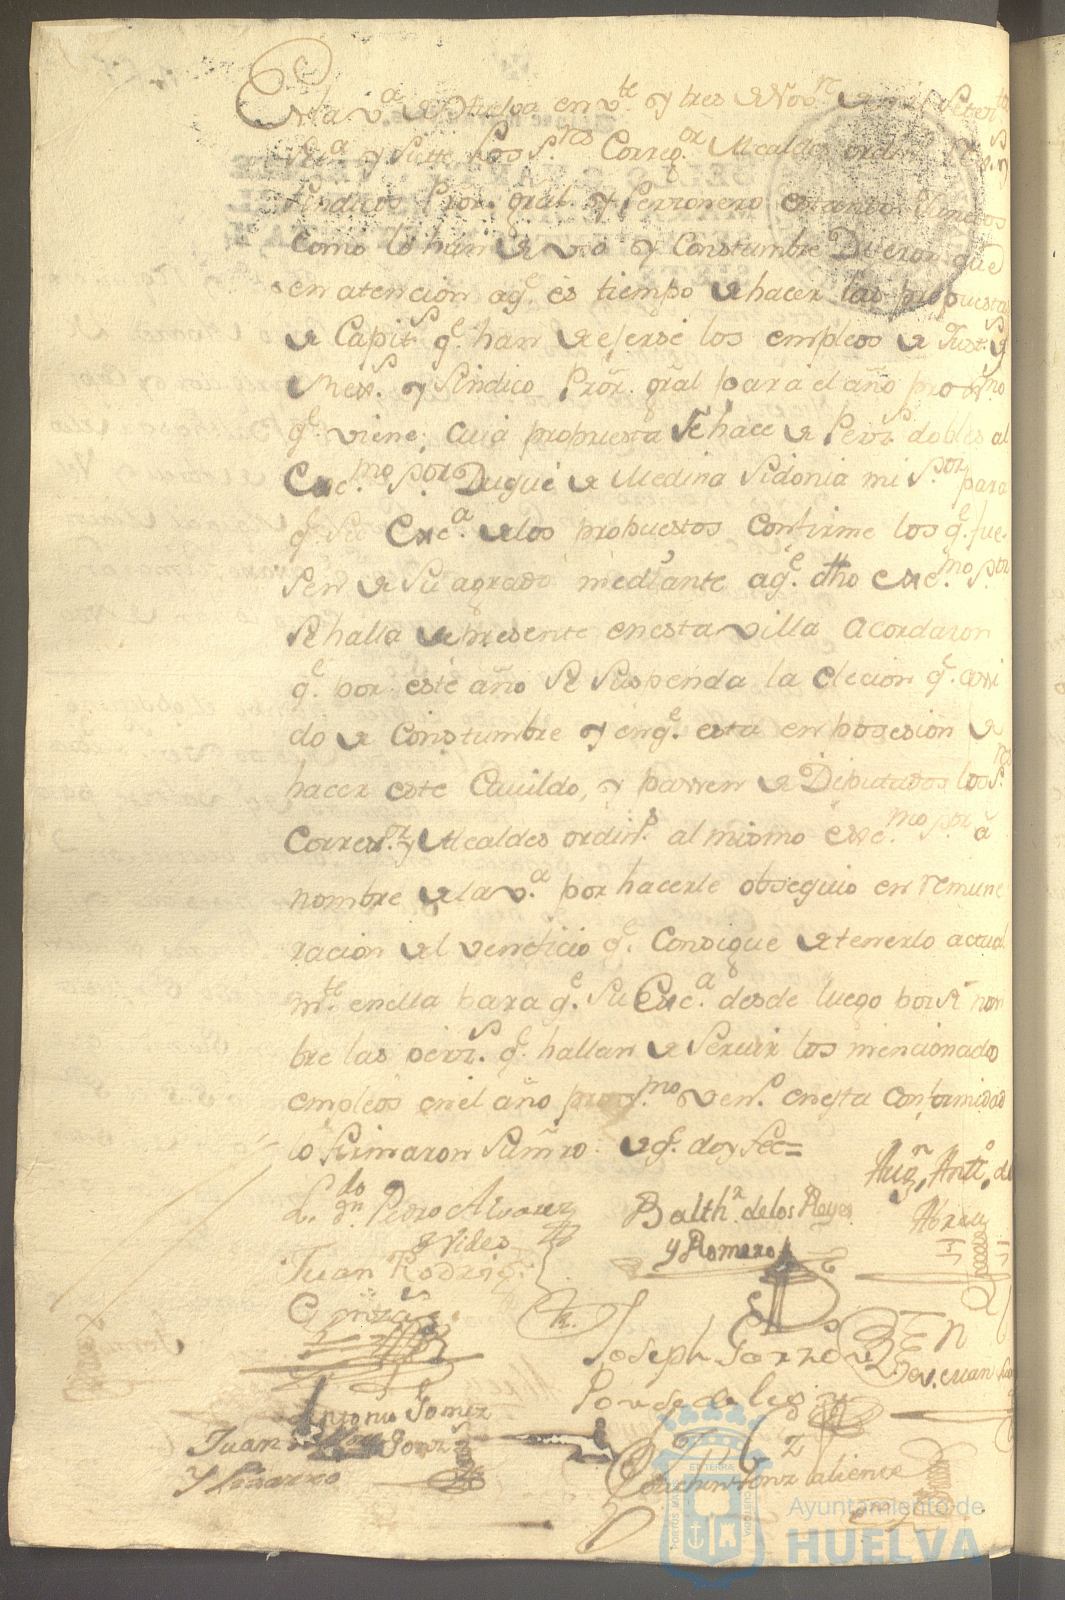 En la v.ª de Huelva en v.te y tres de Nov.re de mil setez.tos
y siette los S.res Correg.or Alcaldes ordin.s
Sindicos Pror. gral. y Perzonero estando
como lo han de uso y Constumbre Dixeron que
en atencion aq.e es tiempo de hacer las propuestas
de Capit.s q.e han de exerse los empleos de Just.s y
Mex.s y Sindico Pror. gral para el año prox.mo
q.e viene, cuia propuesta se hace de Perz.s dobles al
Exc.mo S.or Duque de Medina Sidonia mi S.or para
q.e Su Exc.a de los propuestos confirme los q.e fue-
sen de su agrado mediante aq.e dho exc.mo S.or
se halla de presente en esta villa acordaron
q.e por este año se suspenda la elecion q.e a si
do de Constumbre y en q.e esta en posesion de
hacer este Cauildo, y passen de Diputados los S.res
Corres.or y Alcaldes ordin.s al mismo exc.mo S.or a
nombre de la v.a por hacerle obsequio en remune
racion del veneficio q.e Consigue de tenerlo actual
m.te en ella para q.e Su Exc.a desde luego por si nom
bre las perz.s q.e hallan de Seruir los mencionado
empleos en el año prox.mo ven.o en esta conformidad
lo firmaron Sumro. de q.e doy fee=
L.do dn Pedro Alvarez
de Vides
Balth.r de los Reyes
y Romero
Aug.n Antt.o de
Abreu
Juan Rodrig.
Joseph Garzon
Ponse de leon
Antonio Gomez
Juan Gonz
Y Pizarro
Ayuntamiento de
HUELVA
PORTUS MARIS
ET TERRÆ
CUSTODIA